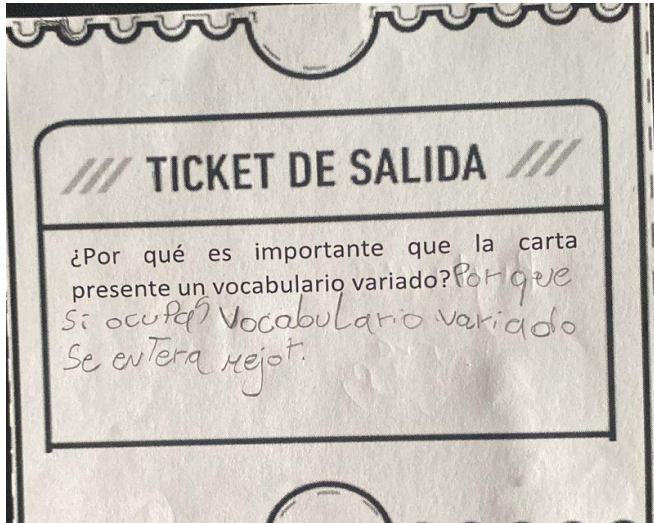 /// TICKET DE SALIDA ///
¿Por qué es importante que la carta
presente un vocabulario variado? Porque
Si ocupas Vocabulario variado
Se entera mejor.